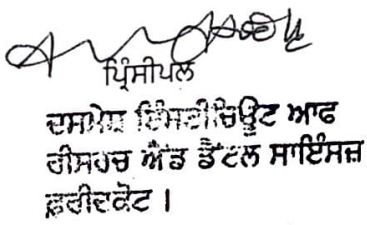 ਪ੍ਰਿੰਸੀਪਲ
ਦਸਮੇਸ਼ ਇੰਸਟੀਚਿਊਟ ਆਫ
ਰੀਸਰਚ ਐਂਡ ਡੈਂਟਲ ਸਾਇੰਸਜ਼
ਫ਼ਰੀਦਕੋਟ ।